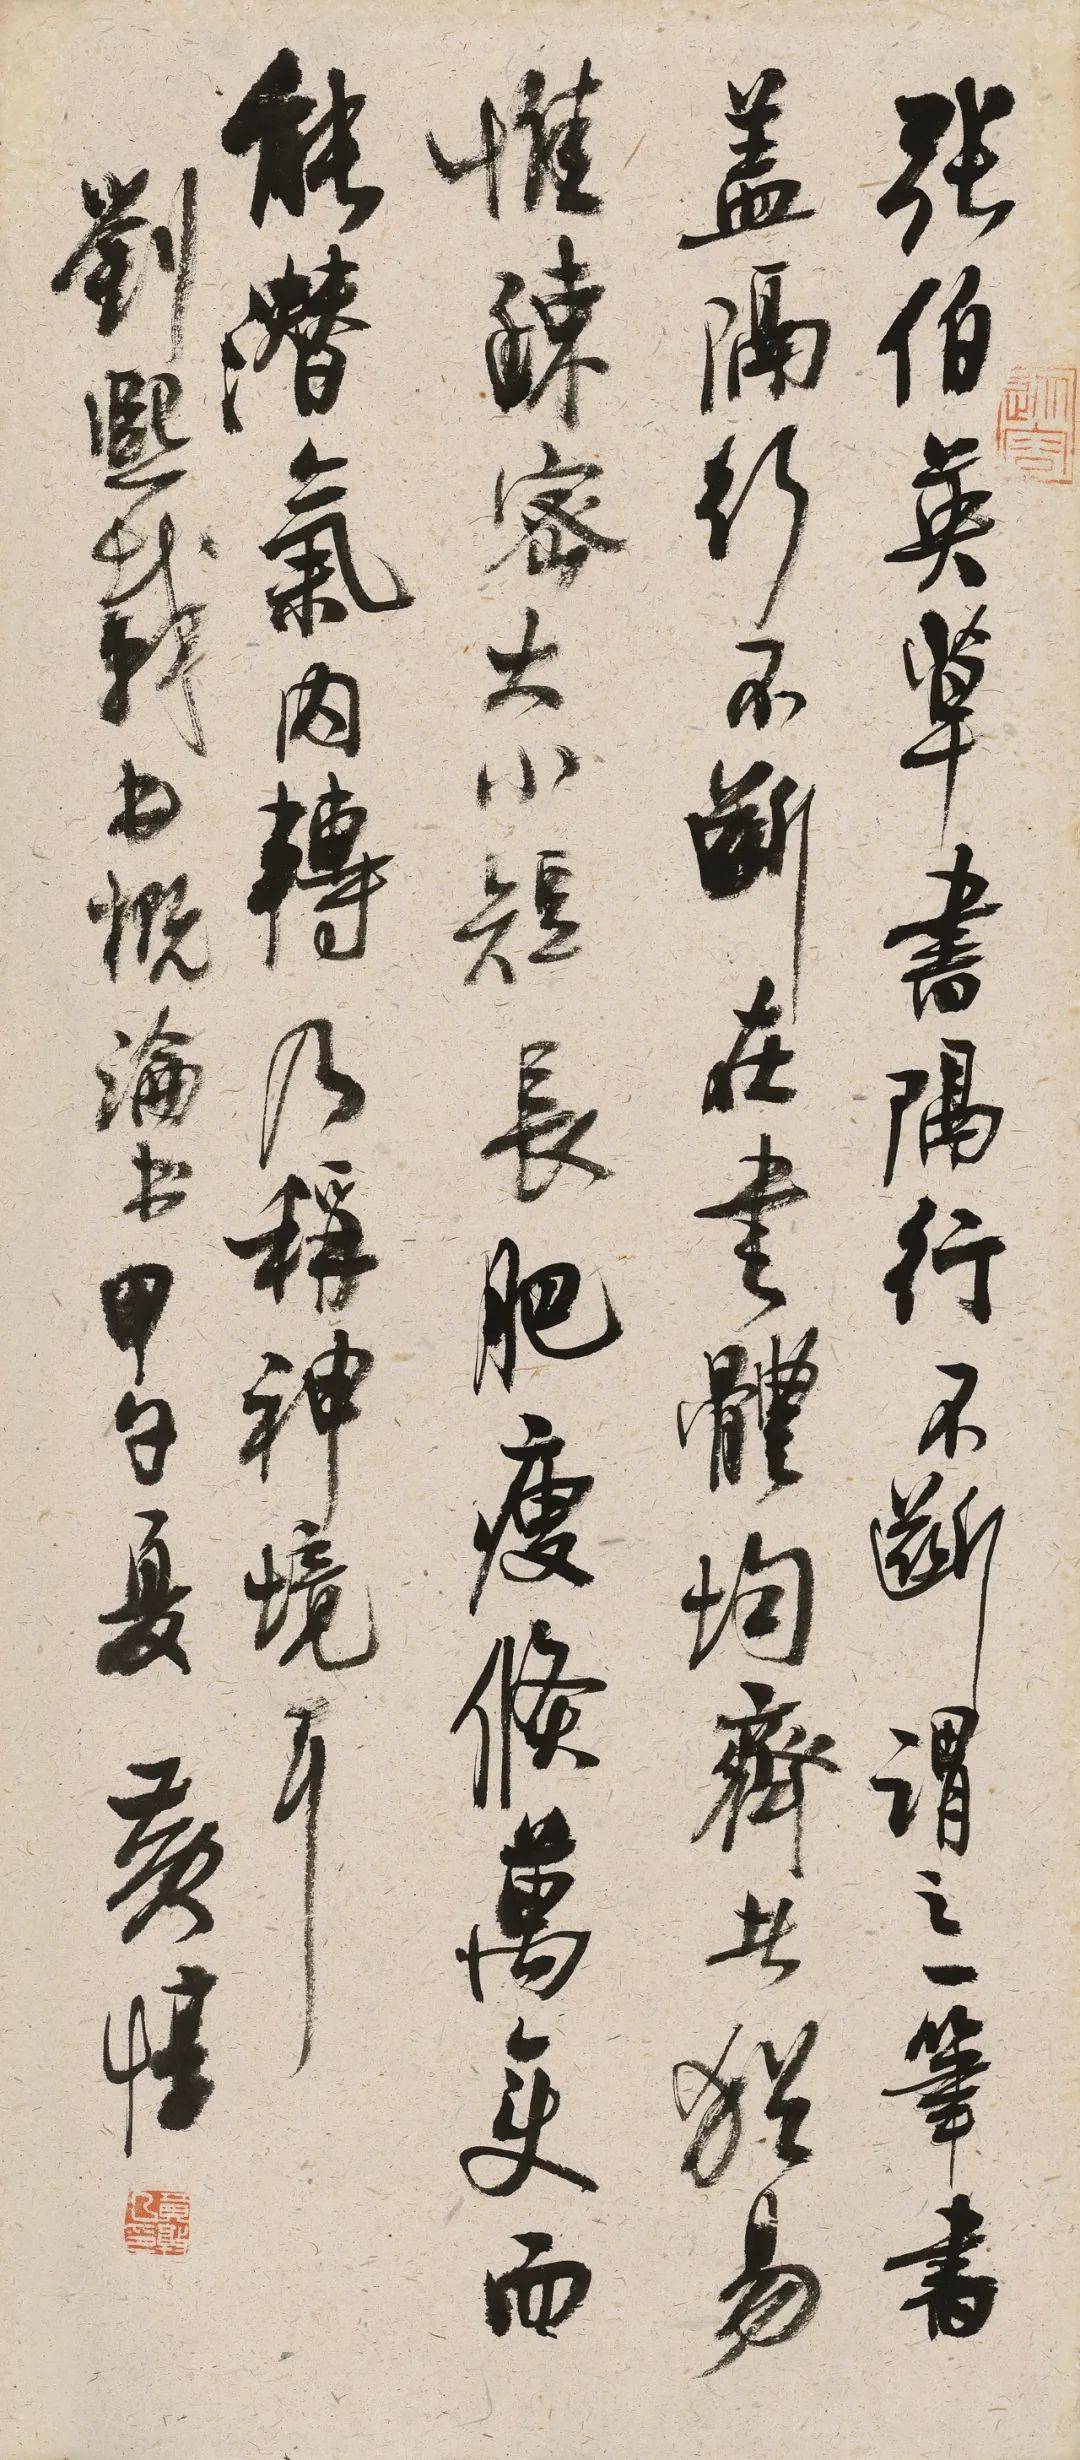 张伯英草書隔行不斷謂之一筆書
盖隔行不斷在書體均齊者猶易
惟疎密大小短長肥瘦倏萬變而
能潛氣內轉乃稱神境耳
劉熙載书概論书甲午夏 黄惇